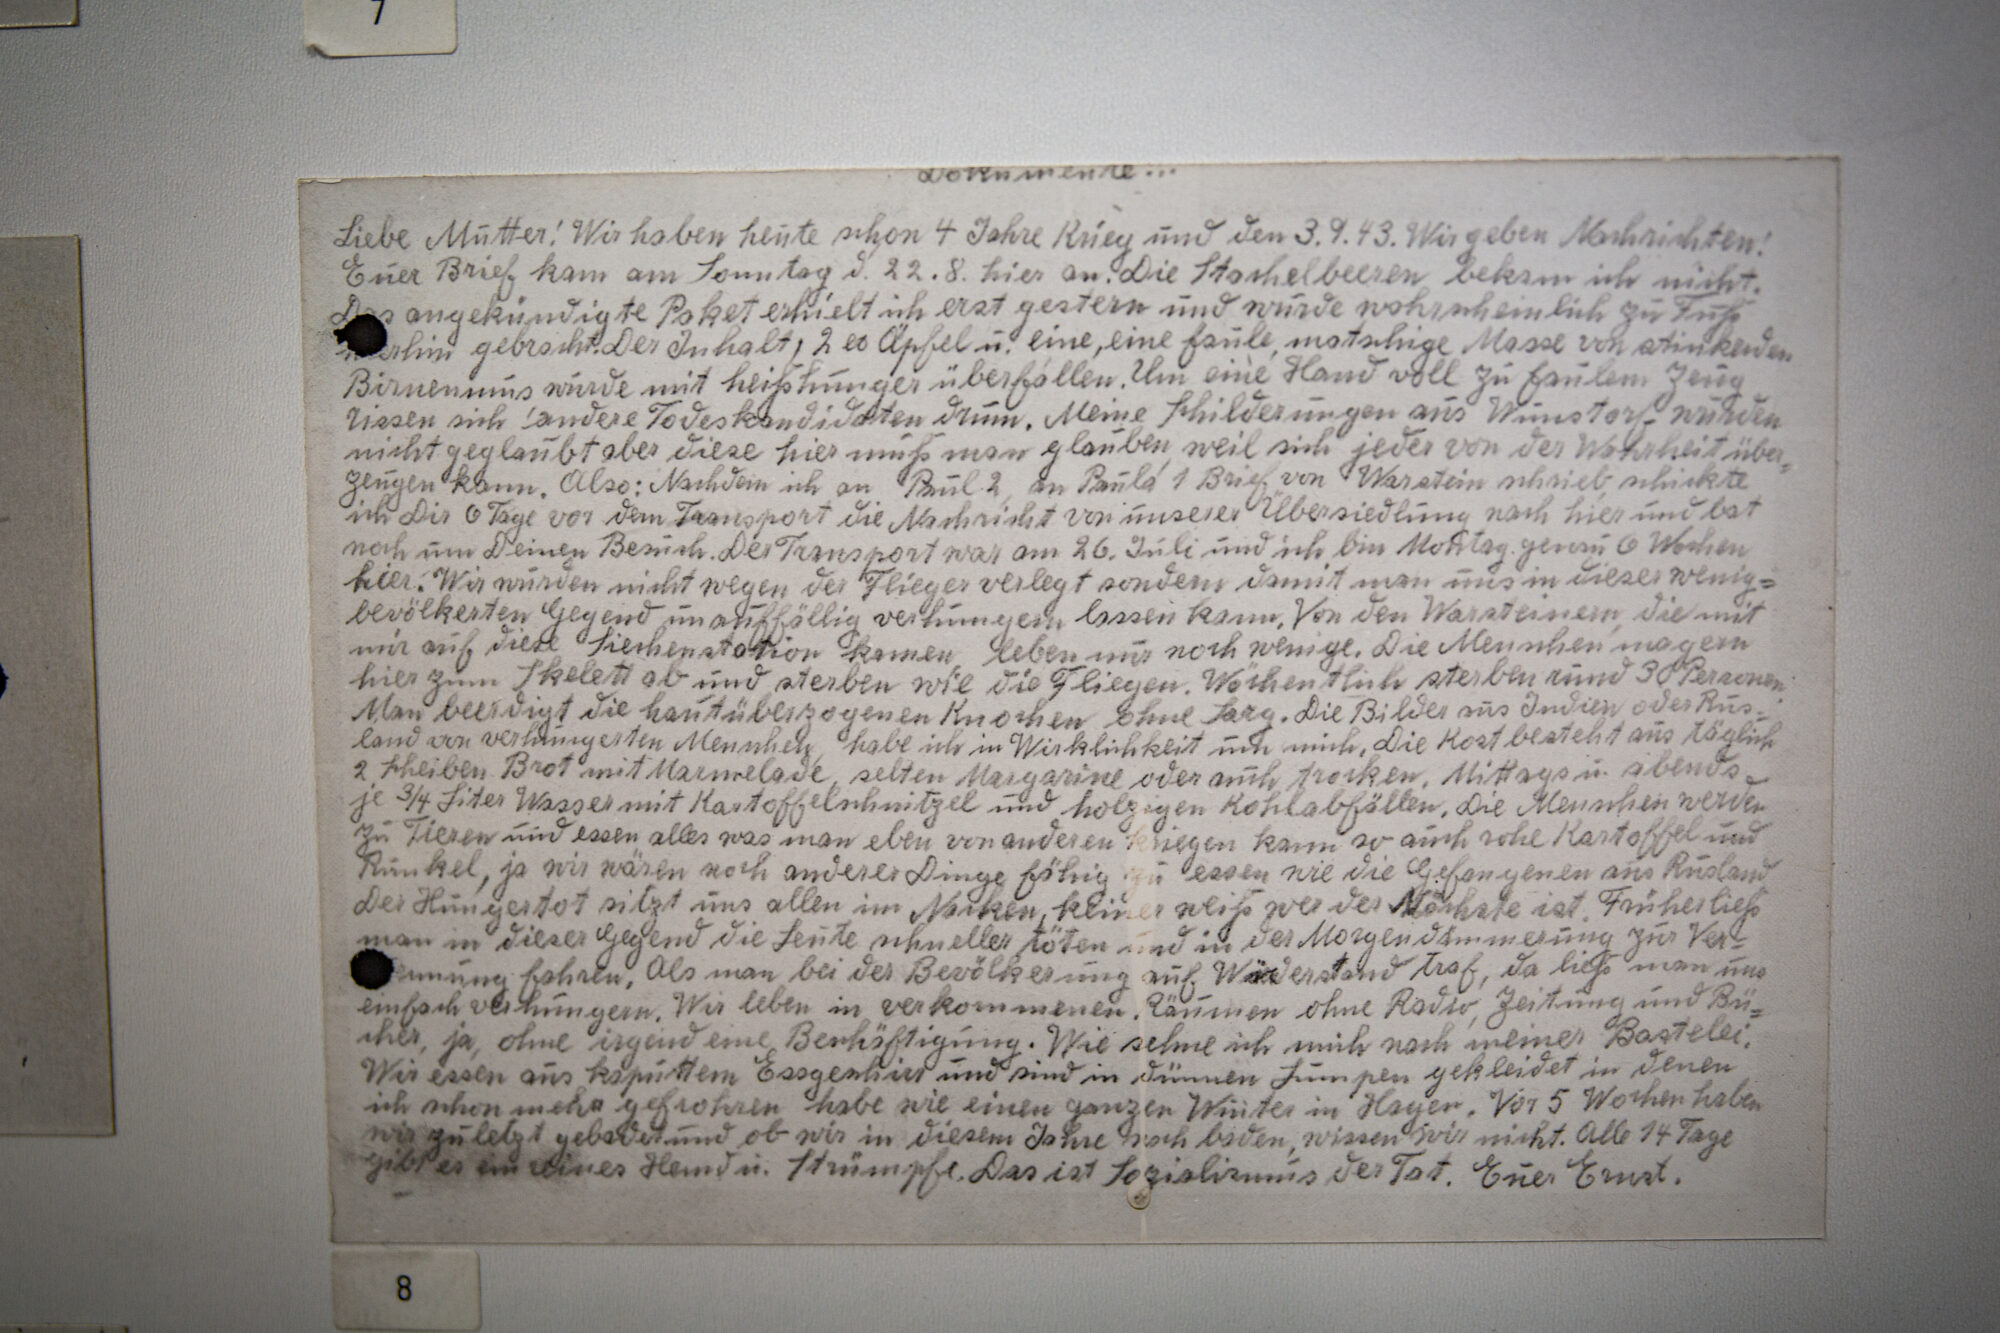 7
Dokumente...
Liebe Mutter! Wir haben heute schon 4 Jahre Krieg und den 3.9.43. Wir geben Nachrichten!
Euer Brief kam am Sonntag d. 22.8. hier an. Die Stachelbeeren bekam ich nicht.
Das angekündigte Paket erhielt ich erst gestern und wurde wahrscheinlich zu Fuß
hierhin gebracht. Der Inhalt, 2 Äpfel u. eine, eine faule, matschige Masse von stinkenden
Birnenmus wurde mit heißhunger überfallen. Um eine Hand voll zu faulem Zeug
rissen sich andere Todeskandidaten drum. Meine Schilderungen aus Wunstorf wurden
nicht geglaubt aber diese hier muß man glauben, weil sich jeder von der Wahrheit über=
zeugen kann. Also: Nachdem ich an Paul 2, an Paula 1 Brief von Warstein schrieb, schickte
ich Dir 6 Tage vor dem Transport die Nachricht von unserer Übersiedlung nach hier und bat
noch um Deinen Besuch. Der Transport war am 26. Juli und ich bin Montag genau 6 Wochen
hier. Wir wurden nicht wegen der Flieger verlegt sondern damit man uns in dieser wenig=
bevölkerten Gegend unauffällig verhungern lassen kann. Von den Warsteinern, die mit
mir auf diese Siechenstation kamen, leben nur noch wenige. Die Menschen magern
hier zum Skelett ab und sterben wie die Fliegen. Wöchentlich sterben rund 30 Personen.
Man beerdigt die hautüberzogenen Knochen ohne Sarg. Die Bilder aus Indien oder Rus=
land von verhungerten Menschen, habe ich in Wirklichkeit um mich. Die Kost besteht aus täglich
2 Scheiben Brot mit Marmelade, selten Margarine oder auch trocken. Mittags u. abends
je 3/4 Liter Wasser mit Kartoffelschnitzel und holzigen Kohlabfällen. Die Menschen werden
zu Tieren und essen alles was man eben von anderen kriegen kann so auch rohe Kartoffel und
Runkel, ja wir wären noch anderer Dinge fähig zu essen wie die Gefangenen aus Rusland
Der Hungertot sitzt uns allen im Nacken, keiner weiß wer der Nächste ist. Früher ließ
man in dieser Gegend die Leute schneller töten und in der Morgendämmerung zur Ver=
ennung fahren. Als man bei der Bevölkerung auf Widerstand traf, da ließ man uns
einfach verhungern. Wir leben in verkommenen Räumen ohne Radio, Zeitung und Bü=
cher, ja, ohne irgend eine Beschäftigung. Wie sehne ich mich nach meiner Bastelei.
Wir essen aus kaputtem Essgeschirr und sind in dünnen Lumpen gekleidet in denen
ich schon mehr gefrohren habe wie einen ganzen Winter in Hagen. Vor 5 Wochen haben
wir zuletzt gebadet und ob wir in diesem Jahre noch baden, wissen wir nicht. Alle 14 Tage
gibt es ein reines Hemd u. Strümpfe. Das ist Sozialismus der Tat. Euer Ernst.
8